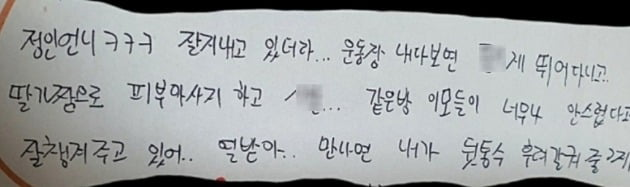 정인언니 ㅋㅋㅋ 잘지내고 있더라... 운동장 내다보면 제 뛰어다니고..
딸기쨈으로 피부마사지 하고 ... 같은방 이모들이 너무 안스럽다고
잘챙겨주고 있어.. 열받아.. 만나면 내가 뒷통수 후려갈궈 줄